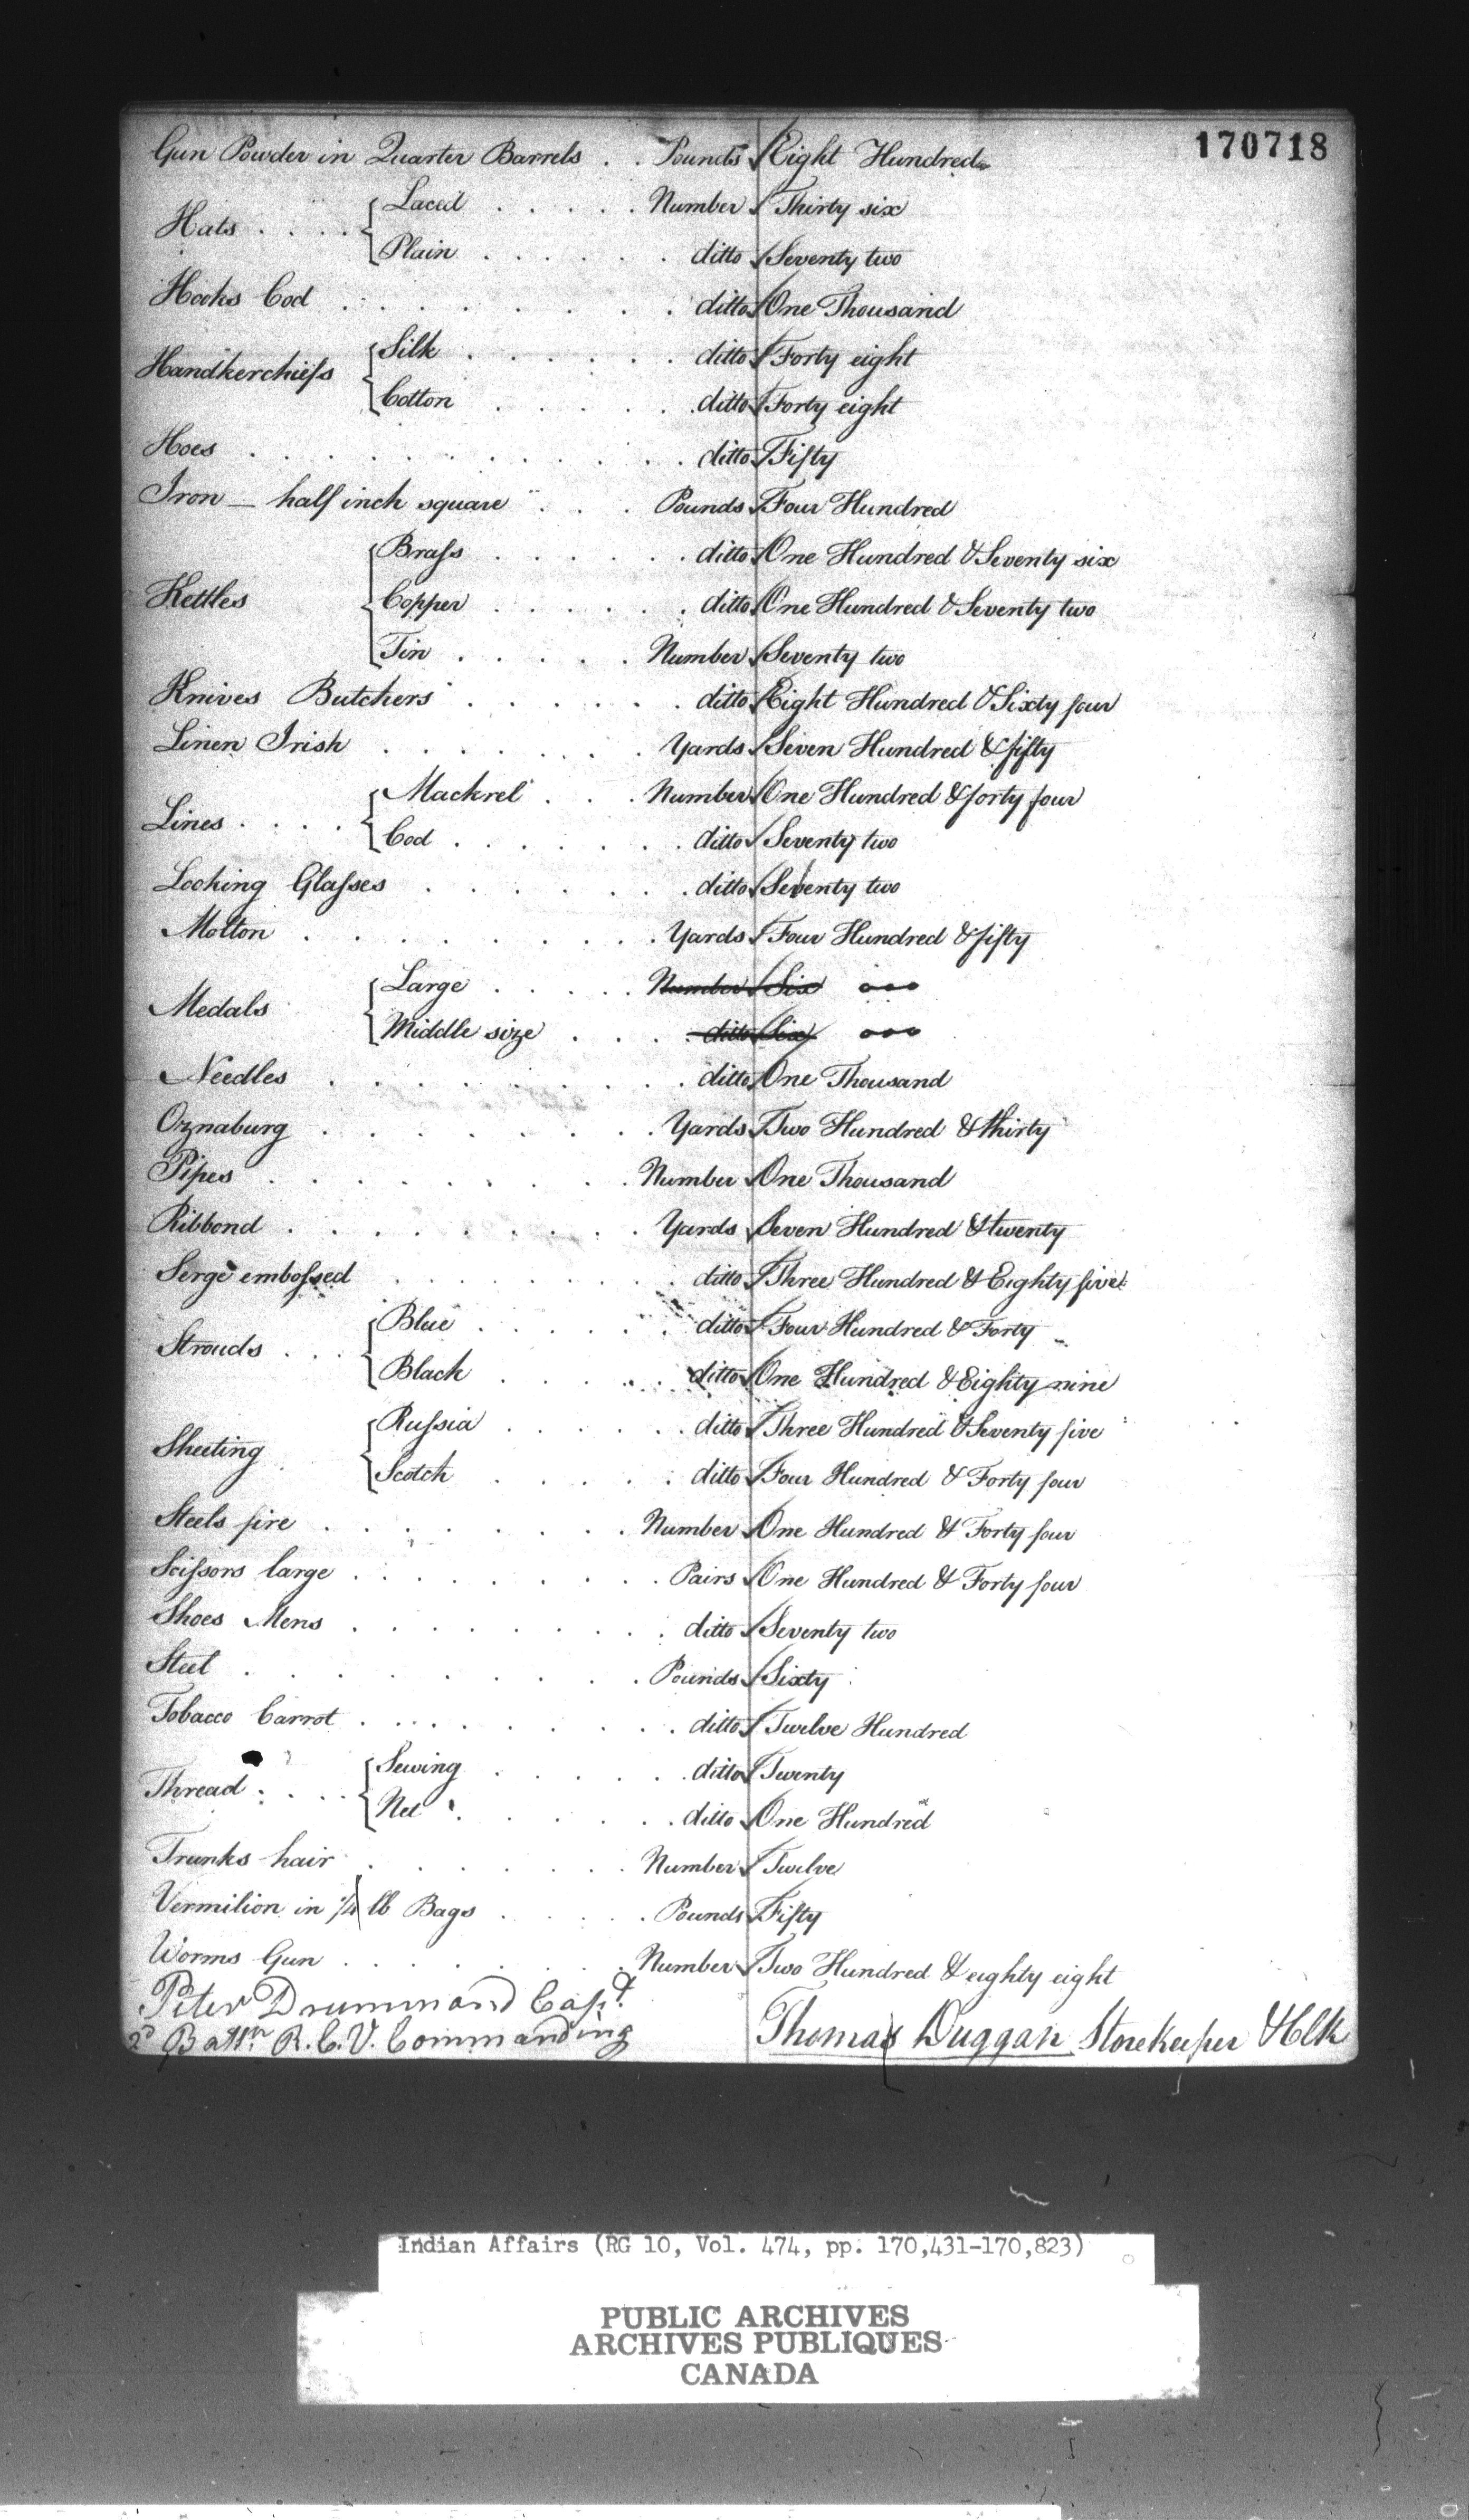 170718
Gun Powder in Quarter Barrels . . Pounds Eight Hundred
Hats . . . . { Laced . . . . . Number Thirty six
Plain . . . . . . ditto Seventy two
Hooks Cod . . . . . . . . ditto One Thousand
Handkerchiefs { Silk . . . . . . ditto Forty eight
Cotton . . . . . ditto Forty eight
Hoes . . . . . . . . . . ditto Fifty
Iron — half inch square . . . Pounds Four Hundred
{ Brass . . . . . . ditto One Hundred & Seventy six
Kettles Copper . . . . . . ditto One Hundred & Seventy two
Tin . . . . . Number Seventy two
Knives Butchers . . . . . . ditto Eight Hundred & Sixty four
Linen Irish . . . . . . . Yards Seven Hundred & fifty
Lines . . . . { Mackrel . . . Number One Hundred & forty four
Cod . . . . . . ditto Seventy two
Looking Glasses . . . . . . ditto Seventy two
Molton . . . . . . . . . Yards Four Hundred & fifty
Medals { Large . . . . . Number Six ooo
Middle size . . . . ditto Six ooo
Needles . . . . . . . . . ditto One Thousand
Oznaburg . . . . . . . . Yards Two Hundred & thirty
Pipes . . . . . . . . . Number One Thousand
Ribbond . . . . . . . . Yards Seven Hundred & twenty
Serge embossed . . . . . . . ditto Three Hundred & Eighty five
Strouds . . . { Blue . . . . . . ditto Four Hundred & Forty
Black . . . . . ditto One Hundred & Eighty nine
Sheeting { Russia . . . . . . ditto Three Hundred & Seventy five
Scotch . . . . . ditto Four Hundred & Forty four
Steels fire . . . . . . . . Number One Hundred & Forty four
Scissors large . . . . . . . . Pairs One Hundred & Forty four
Shoes Mens . . . . . . . . ditto Seventy two
Steel . . . . . . . . . Pounds Sixty
Tobacco Carrot . . . . . . . . ditto Twelve Hundred
Thread . . . { Sewing . . . . . ditto Twenty
Net . . . . . . ditto One Hundred
Trunks hair . . . . . . . Number Twelve
Vermilion in 1/4 lb Bags . . . . . Pounds Fifty
Worms Gun . . . . . . . Number Two Hundred & eighty eight
Peter Drummond Capt.
2d Battn R. C. V. Commanding
Thomas Duggan Storekeeper & Clk
Indian Affairs (RG 10, Vol. 474, pp. 170,431-170,823)
PUBLIC ARCHIVES
ARCHIVES PUBLIQUES
CANADA